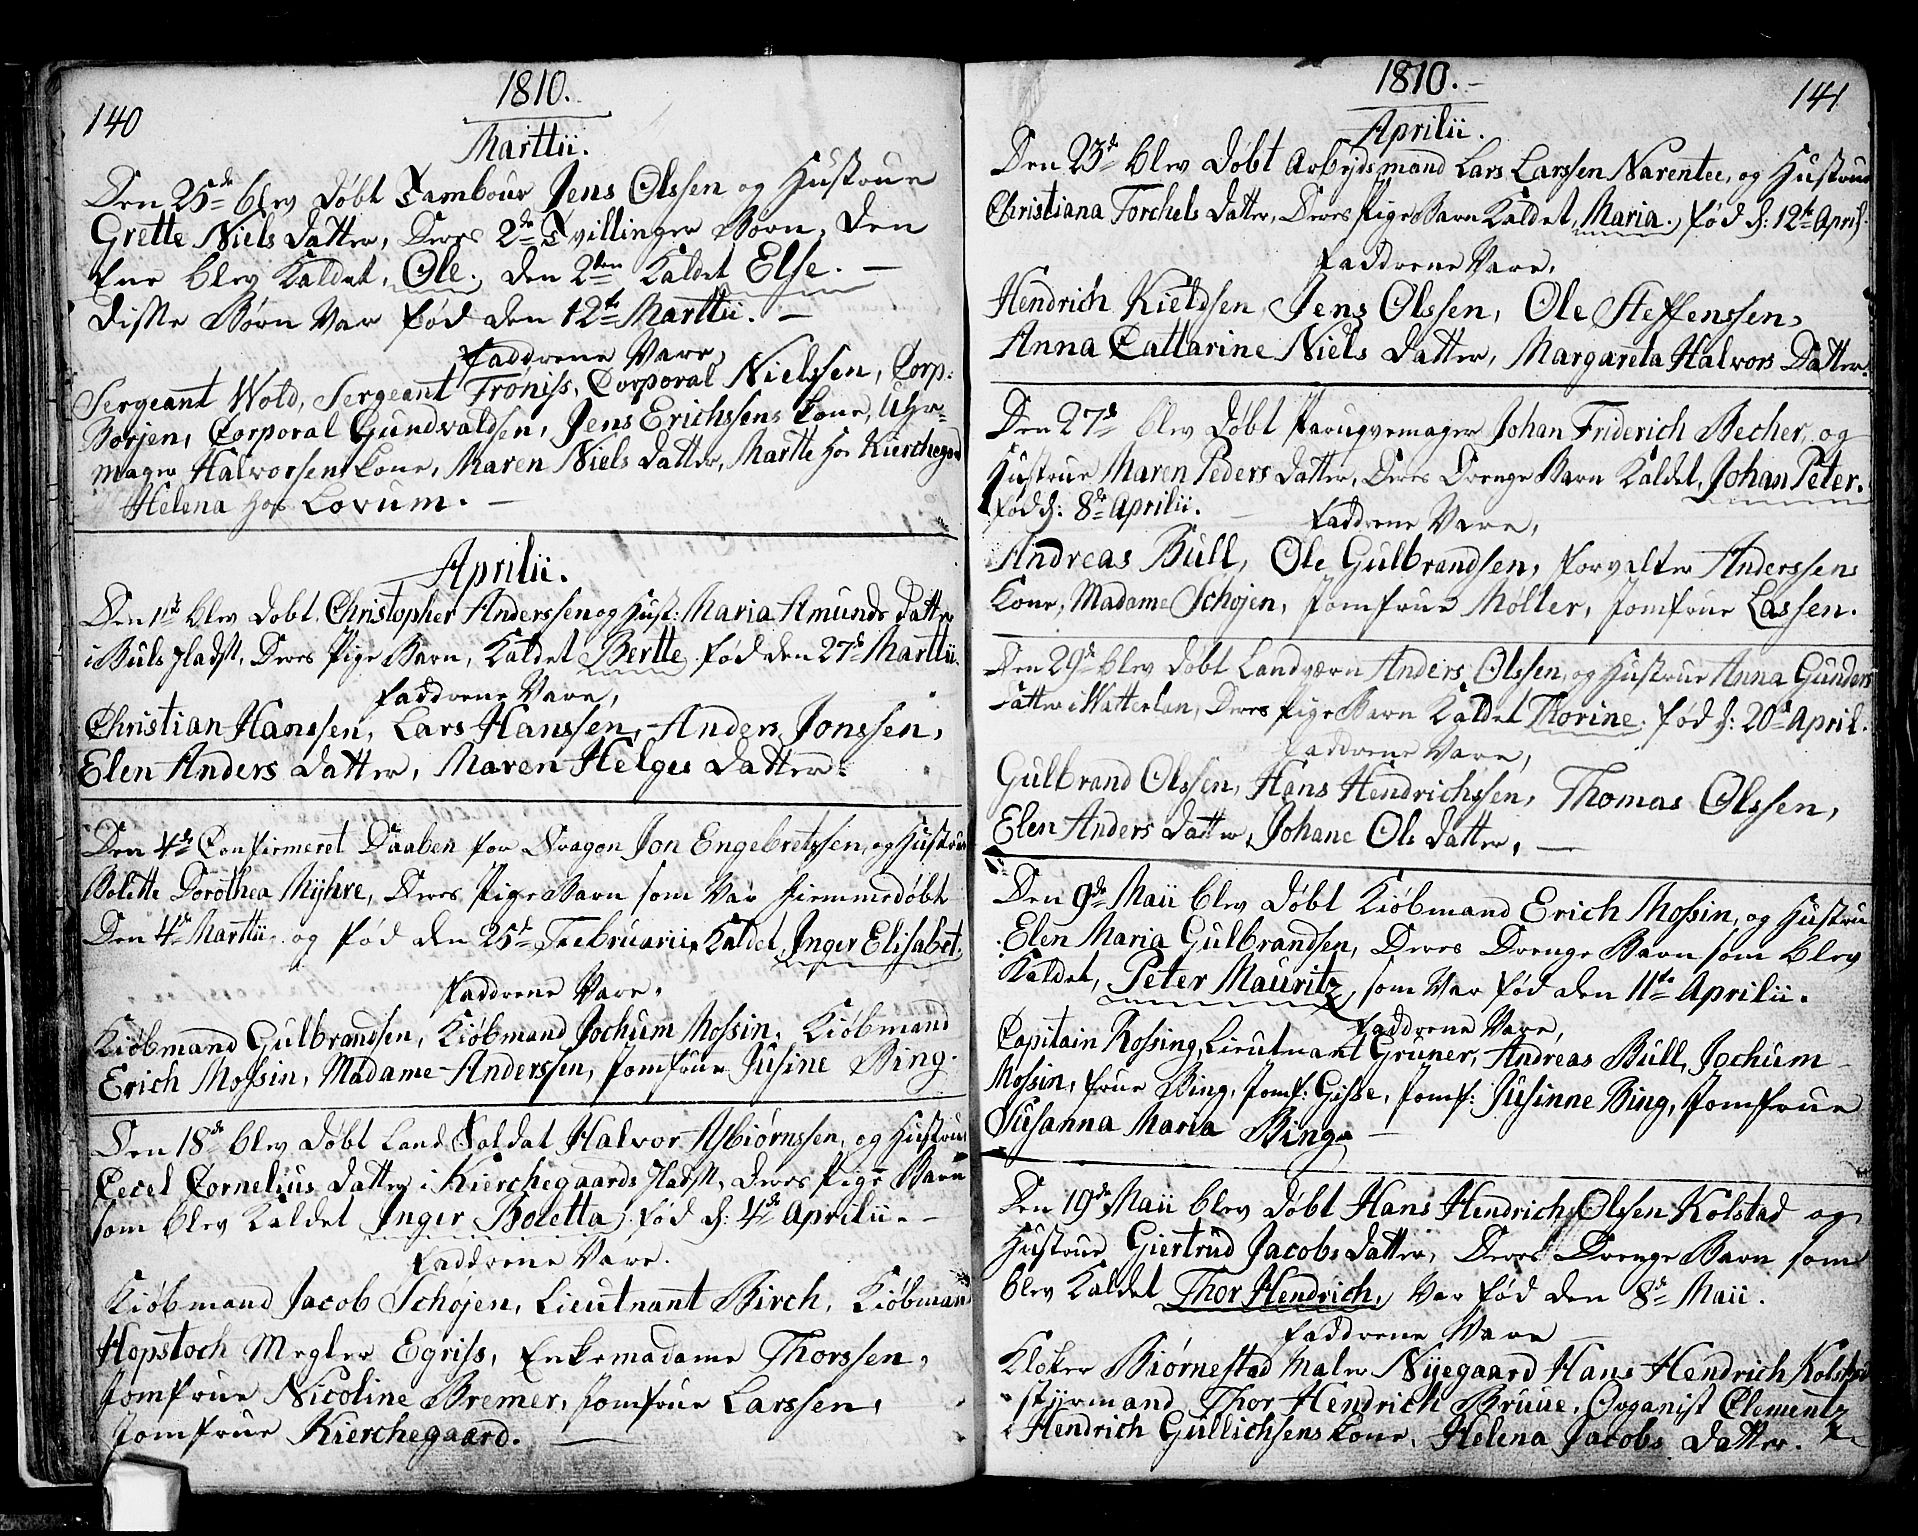 140
1810.
Marttii.
Den 25de blev døbt Tambour Jens Olssen og Hustrue
Grette Niels datter, Deres 2de Tvillinger Børn, den
Ene blev Kaldet, Ole. den 2den Kaldet Else. –
Disse Børn Var fød den 12te Marttii. –
Faddrene Vare,
Sergeant Wold, Sergeant Froniss, Corporal Nielssen, Corp:
Borjen, Corporal Gundvaldsen, Jens Erichssens Kone, Uhr-
mager Halvorsens Kone, Maren Niels datter, Martte hos Kierchegaard
Helena hos Lovum. –
Aprilii.
Den 1ste blev døbt Christopher Anderssen og Hust: Maria Amunds datter
i Buls Pladst, Deres Pige Barn, Kaldet Bertte fød den 27de Marttii.
Faddrene Vare,
Christian Hanssen, Lars Hanssen, Anders Jonssen,
Elen Anders datter, Maren Helges datter.
Den 4de Confirmeret Daaben for Dragon Jon Engebretssen, og Hustrue
Bolette Dorothea Myhre, Deres Pige Barn som Var Hiemmedøbt
Den 4de Marttii, og fød den 25de Februarii, Kaldet, Inger Elisabet,
Faddrene Vare,
Kiøbmand Gulbrandsen, Kiøbmand Jochum Mossin, Kiøbmand
Erich Mossin, Madame Anderssen, Jomfrue Jusine Bing.
Den 18de blev døbt Land Soldat Halvor Asbiørnssen, og Hustrue
Cecel Cornelius datter i Kierchegaards Pladst, deres Pige Barn
som blev Kaldet Inger Boletta, fød d: 4de Aprilii. –
Faddrene Vare.
Kiøbmand Jacob Schøjen, Lieutnant Birch, Kiøbmand
Hopstoch Megler Egriss, Enkemadame Thorssen,
Jomfrue Nicoline Bremer, Jomfrue Larssen,
Jomfrue Kierchegaard. –
1810. –
141
Aprilii.
Den 23de blev døbt Arbejdsmand Lars Larssen Narentee, og Hustrue
Christiana Torchels datter, Deres Pige Barn Kaldet, Maria. fød d: 12te April.
Faddrene Vare,
Hendrich Kieldsen, Jens Olssen, Ole Steffenssen,
Anna Cattarine Niels datter, Margareta Halvors Datter.
Den 27de blev døbt Paruqvemager Johan Friderich Becher, og
Hustrue Maren Peders datter, Deres Drenge Barn Kaldet, Johan Peter.
fød d: 8de Aprilii. –
Faddrene Vare,
Andreas Bull, Ole Gulbrandsen, Forvalter Anderssens
Kone, Madame Schøjen, Jomfrue Møller, Jomfrue Lassen.
Den 29de blev døbt Landværn Anders Olssen, og Hustrue Anna Gunders
datter i Watterlan, Deres Pige Barn Kaldet Thorine. fød d: 20de April.
Faddrene Vare,
Gulbrand Olssen, Hans Hendrichssen, Thomas Olssen,
Elen Anders datter, Johane Ols datter, –
Den 9de Maii blev døbt Kiøbmand Erich Mossin, og Hustrue
Elen Maria Gulbrandsen, Deres Drenge Barn som blev
Kaldet, Peter Mauritz, som Var fød den 11te Aprilii.
Faddrene Vare,
Capitain Rossing, Lieutnant Gruner, Andreas Bull, Jochum
Mossin, frue Bing, Jomf: Gisse, Jomf: Jusinne Bing, Jomfrue
Susanna Maria Bing. –
Den 19de Maii blev døbt Hans Hendrich Olssen Kolstad og
Hustrue Giertrud Jacobs datter, Deres Drenge Barn som
blev Kaldet Thor Hendrich, Var fød den 8de Maii.
Faddrene Vare
Klokker Biørnestad Maler Nyegaard Hans Hendrich Kolstad
Styrmand Thor Hendrich Bruue, Organist Clementz
Hendrich Gullichsens Kone, Helena Jacobs datter.